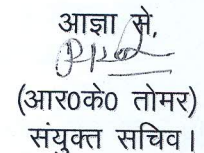 आज्ञा से,
(आर0के0 तोमर)
संयुक्त सचिव।